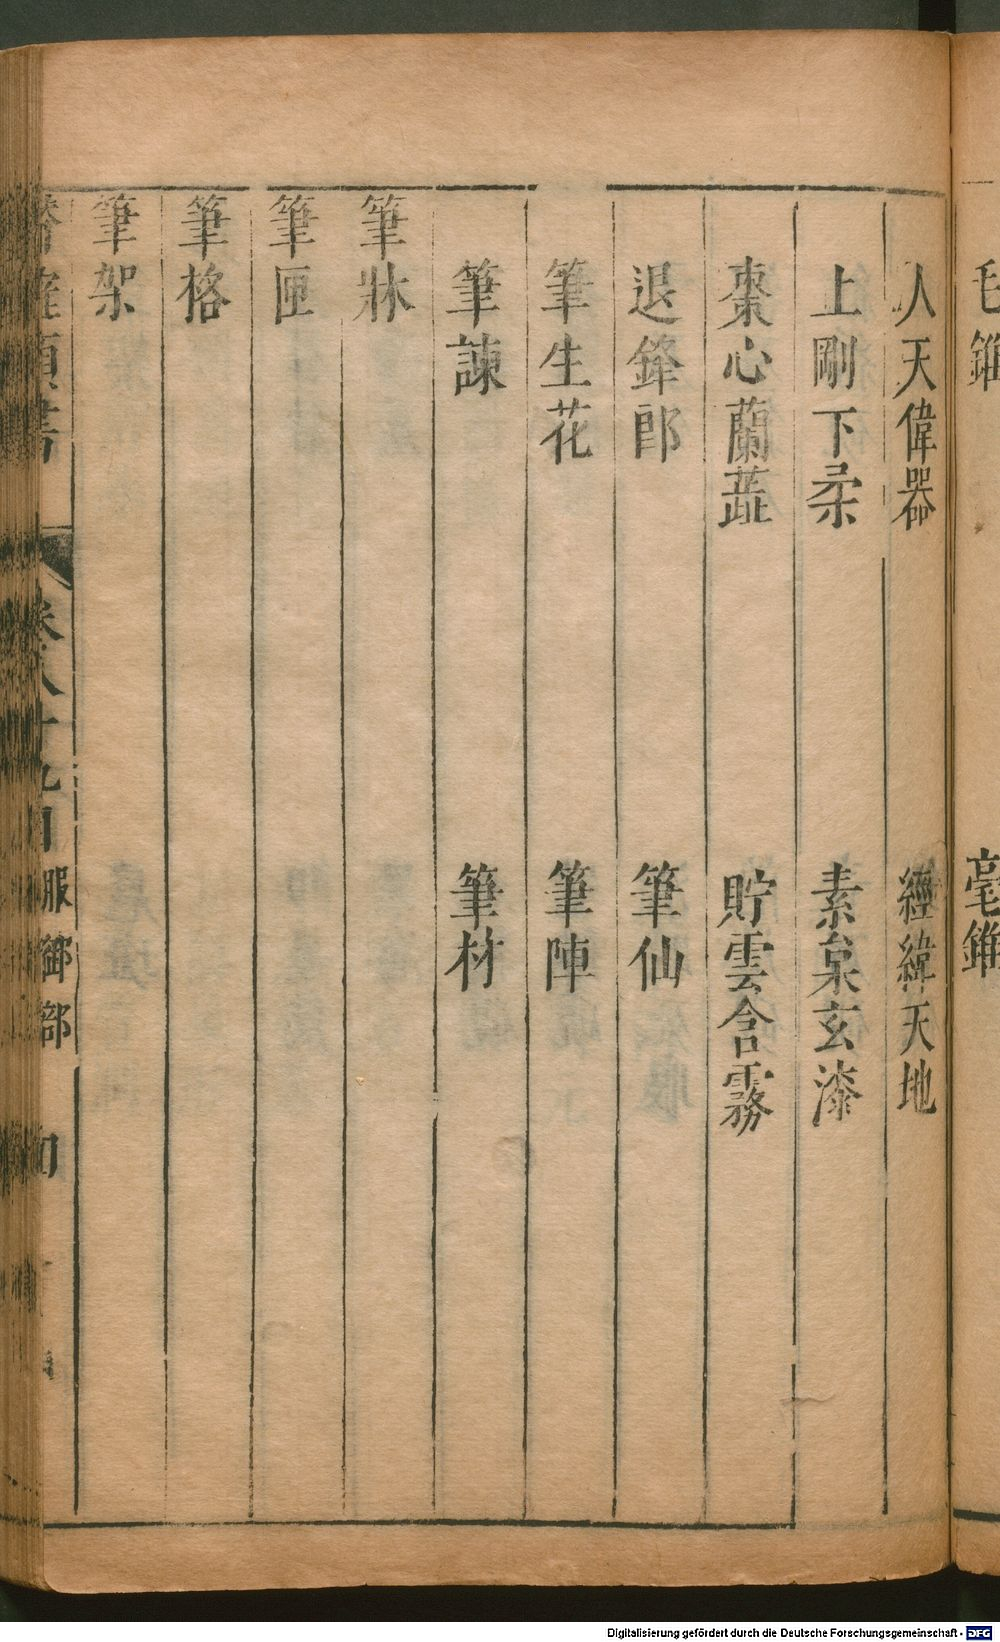 毛錐
毫錐
人天偉器
經緯天地
上剛下柔
素枲玄漆
棗心蘭蕋
貯雲含霧
退鋒郎
筆仙
筆生花
筆陣
筆諫
筆材
筆牀
筆匣
筆格
筆架
卷八十九目
服御部
Digitalisierung gefördert durch die Deutsche Forschungsgemeinschaft - DFG